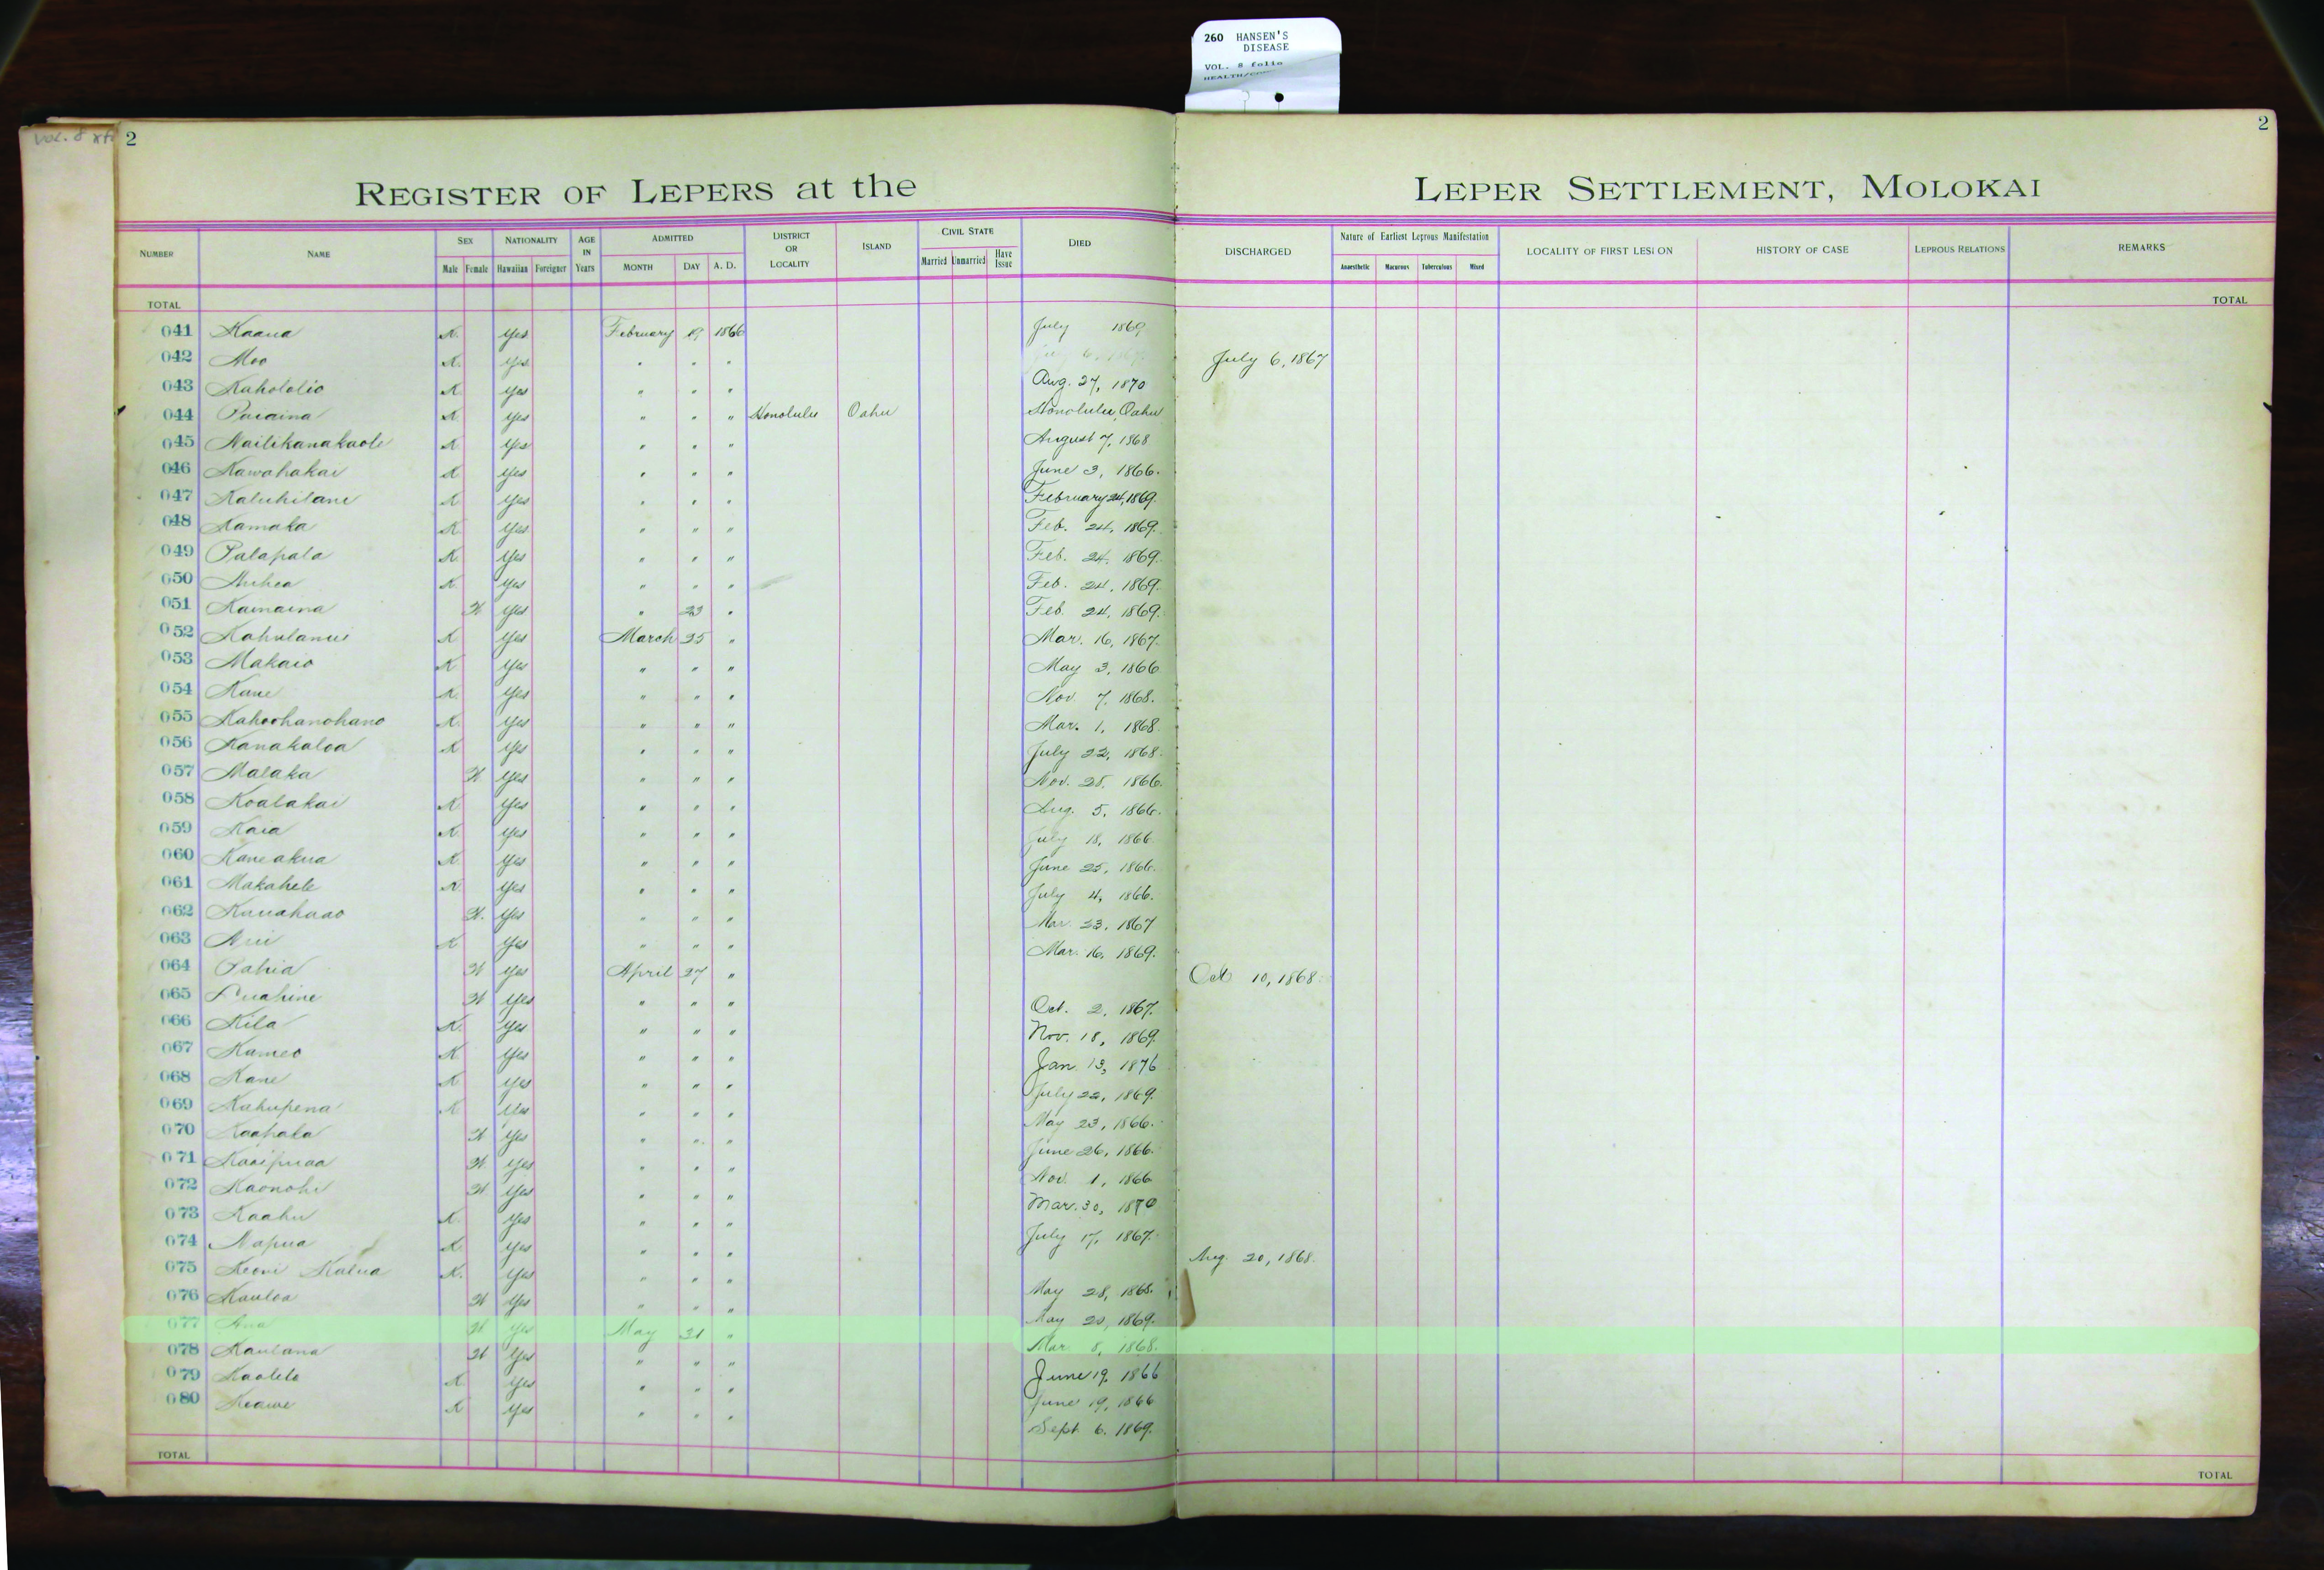 260 HANSEN'S
DISEASE
VOL. 8 folio
Vol. 8
2
2
REGISTER OF LEPERS at the LEPER SETTLEMENT, MOLOKAI
NUMBER NAME SEX NATIONALITY AGE IN Years ADMITTED DISTRICT OR LOCALITY ISLAND CIVIL STATE DIED DISCHARGED Nature of Earliest Leprous Manifestation LOCALITY OF FIRST LESION HISTORY OF CASE LEPROUS RELATIONS REMARKS
Male Female Hawaiian Foreigner MONTH DAY A. D. Married Unmarried Have Issue Anaesthetic Macurous Tuberculous Mixed
TOTAL TOTAL
041 Kaaua K. Yes February 19 1866 July 1869
042 Moo K. Yes " " " July 6, 1867
043 Kahololio K. Yes " " " Aug. 27, 1870
044 Puaaina K. Yes " " " Honolulu Oahu Honolulu, Oahu
045 Nailikanakaole K Yes " " " August 7, 1868
046 Kawahakai K Yes " " " June 3, 1866.
047 Kaluhilani K Yes " " " February 24, 1869.
048 Kamaka K Yes " " " Feb. 24, 1869.
049 Palapala K. Yes " " " Feb. 24, 1869.
050 Auhea K. Yes " " " Feb. 24, 1869.
051 Kamaina W Yes " 23 " Feb. 24, 1869.
052 Kahulanui K Yes March 25 " Mar. 16, 1867.
053 Makaio K Yes " " " May 3, 1866
054 Kane K. Yes " " " Nov. 7, 1868.
055 Kahoohanohano K. Yes " " " Mar. 1, 1868.
056 Kanakaloa K Yes " " " July 22, 1868.
057 Malaka W Yes " " " Nov. 28, 1866.
058 Koalakai K Yes " " " Aug. 5, 1866.
059 Kaia K. Yes " " " July 18, 1866.
060 Kaneakua K Yes " " " June 25, 1866.
061 Makahele K. Yes " " " July 4, 1866.
062 Kauahaao W. Yes " " " Mar. 23, 1867
063 K Yes " " " Mar. 16, 1869.
064 Pahia W Yes April 27 " Oct 10, 1868.
065 Puahine W Yes " " " Oct. 2, 1867.
066 Kila K. Yes " " " Nov. 18, 1869.
067 Kameo K Yes " " " Jan 13, 1876
068 Kane K Yes " " " July 22, 1869.
069 Kahupena K Yes " " " May 23, 1866.
070 Kaahala W Yes " " " June 26, 1866.
071 Kaaipuaa W. Yes " " " Nov. 1, 1866
072 Kaonohi W Yes " " " Mar. 30, 1870
073 Kaahu K. Yes " " " July 17, 1867.
074 Napua K. Yes " " " Aug. 20, 1868.
075 Keoni Kalua K. Yes " " " May 28, 1868.
076 Kauloa W Yes " " " May 20, 1869.
077 Ana W Yes May 21 " Mar. 8, 1868.
078 Kaulana W Yes " " " June 19, 1866
079 Kaolelo K Yes " " " June 19, 1866
080 Keawe K Yes " " " Sept 6. 1869.
TOTAL TOTAL